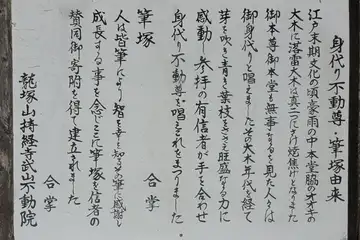 身代り不動尊・筆塚由来
江戸末期文化の頃豪雨の中本堂脇のカオキの
大木に落雷大木は真二つにさけ焼焦げとなりました
御本尊御本堂も無事なるを見た人々は
御身代りと唱えましたその大木年代を経て
芽を吹き青き葉枝とさえ旺盛なる力に
感動し参拝の有信者が手を合わせ
身代り不動尊と唱えられをまつりました
合掌
筆塚
人は皆筆により智を幸を知るその筆に感謝し
成長する事を念じここに筆塚を信者の
賛同御寄附を得て建立されました
合掌
龍塚山持経寺武山不動院